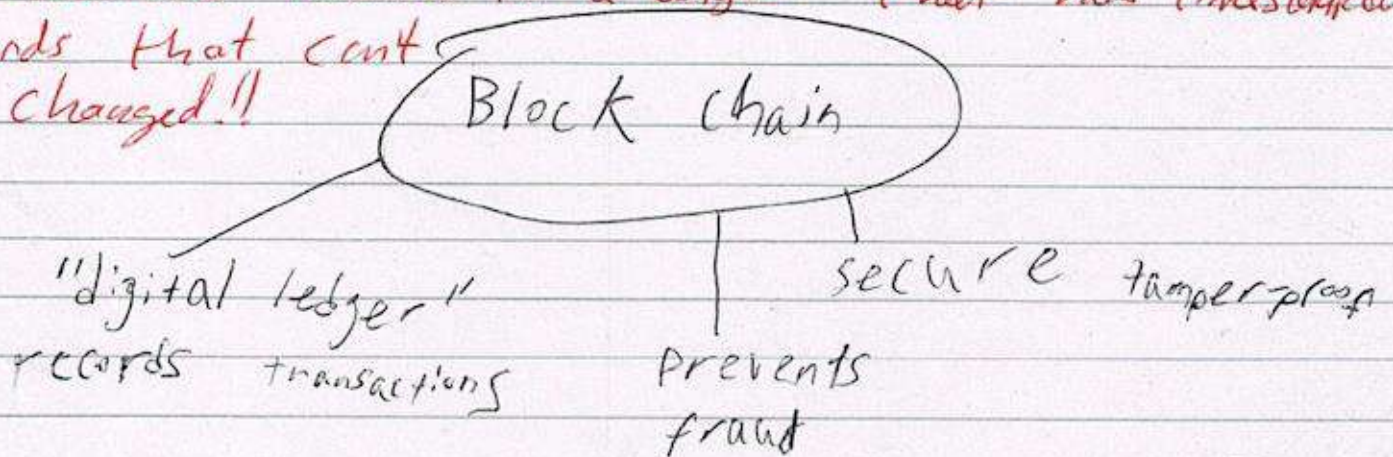 that has timestamped
rds that cant
changed!!
Block Chain
"digital ledger"
records transactions
prevents
fraud
secure tamper-proof